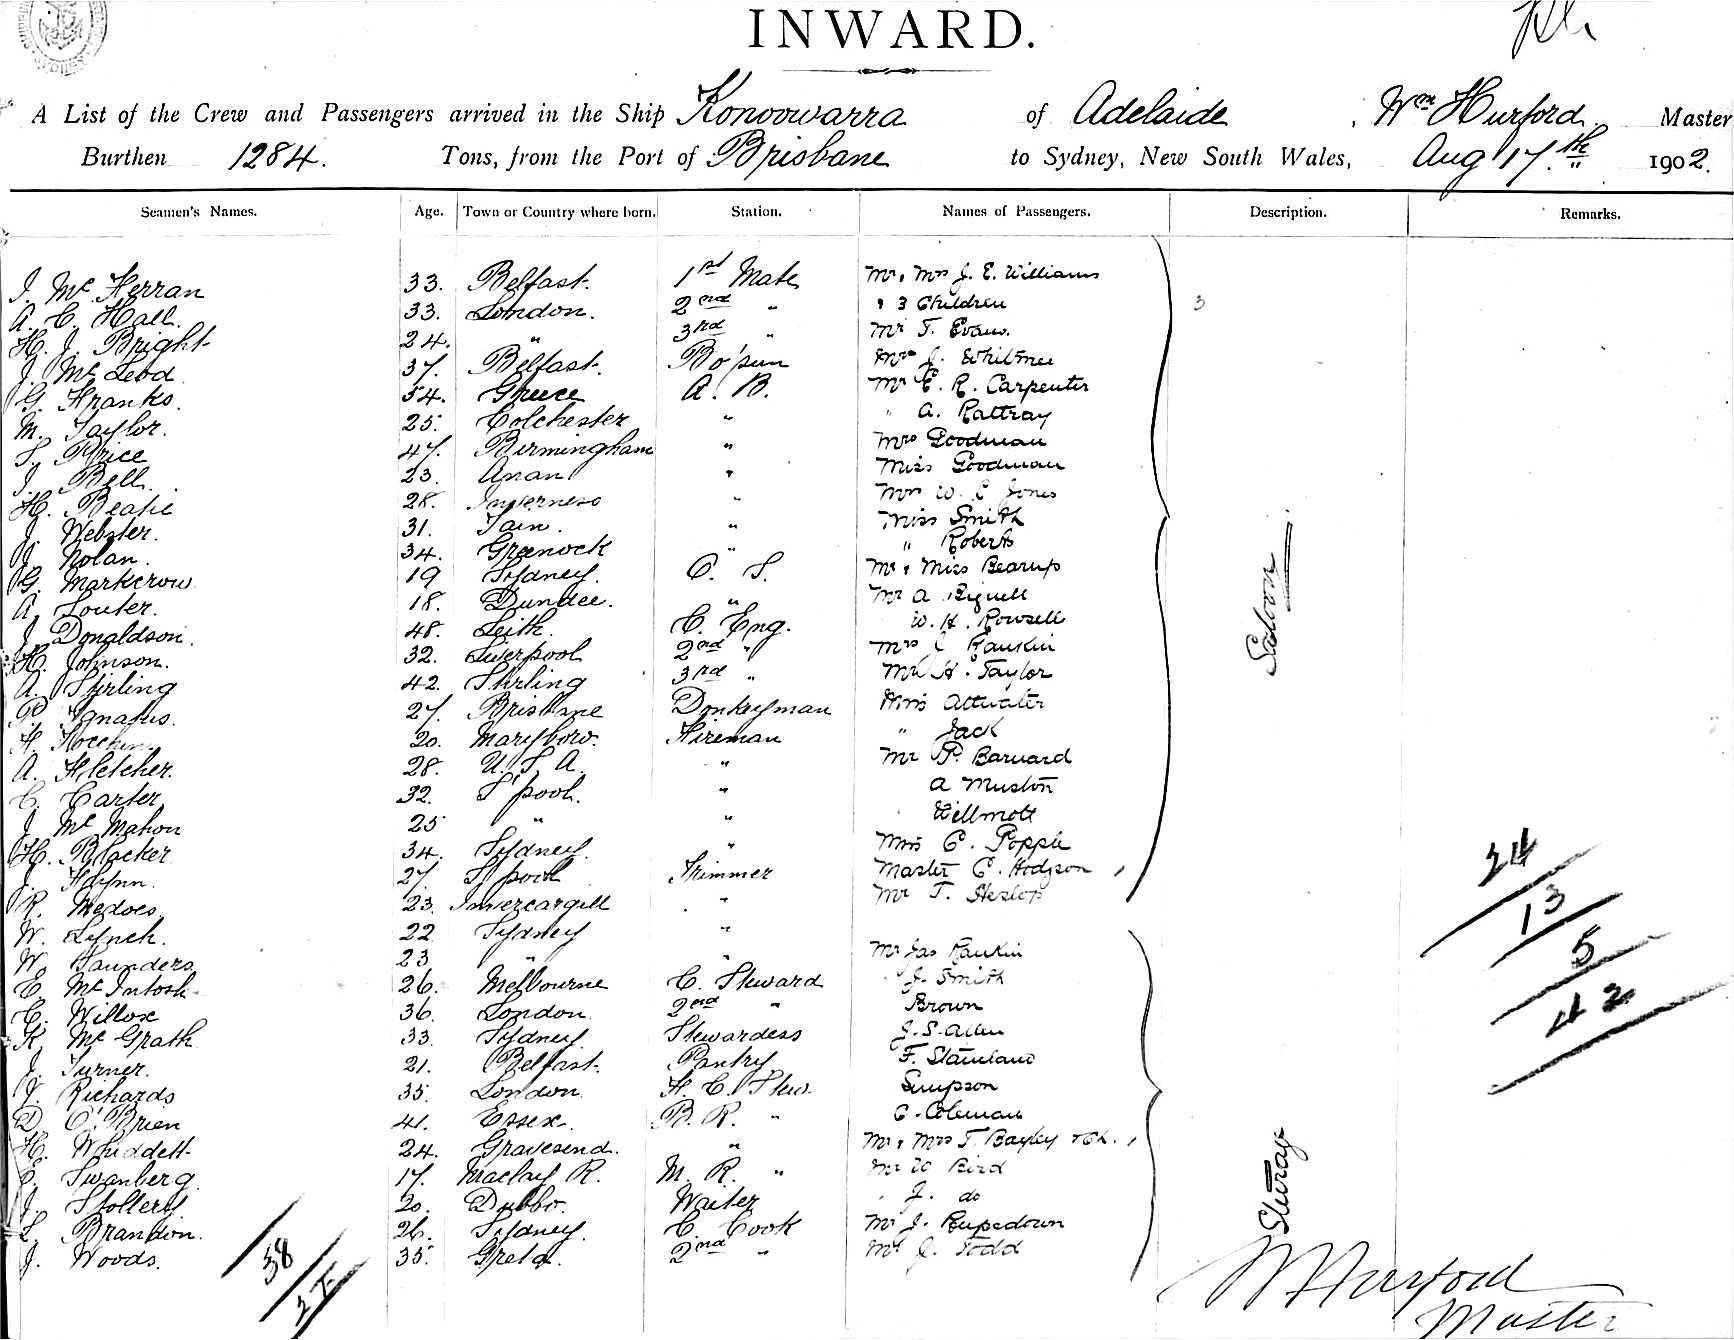 INWARD.
A List of the Crew and Passengers arrived in the Ship Konoowarra of Adelaide, Wm Hurford Master
Burthen 1284. Tons, from the Port of Brisbane to Sydney, New South Wales, Aug 17th 1902.
Seamen's Names. Age. Town or Country where born. Station. Names of Passengers. Description. Remarks.
J. McKerran 33. Belfast. 1st Mate Mr, Mrs J. E. Williams
A. C. Hall. 33. London. 2nd " , 3 Children 3
H. J. Bright 24. " 3rd " Mr T. Evans.
J. McLeod 37. Belfast. Bo'sun Mrs J. Whitmee
G. Franks. 54. Greece A. B. Mr E. R. Carpenter
M. Taylor. 25. Colchester " " A. Rattray
S. Price 47. Birmingham " Mrs Goodman
J. Bell. 23. Anan " Miss Goodman
H. Beatie 28. Inverness " Mrs W. C Jones
J. Webster. 31. Tain. " Miss Smith
J. Nolan. 34. Greenock " " Roberts
G. Markcrow 19 Sydney. O. S. Mr, Miss Bearup
A. Souter. 18. Dundee. " Mr A Bignell
J. Donaldson. 48. Leith. C. Eng. W. H. Rowsell
H. Johnson. 32. Liverpool 2nd " Mrs J Rankin
A. Stirling 42. Stirling 3rd " Mr H. Taylor
P. Ignatus. 27. Brisbane Donkeyman Miss Attwater
20. Marybow. Fireman " Jack
A. Fletcher. 28. U. S. A. " Mr P. Barnard
C. Carter 32. L'pool. " A Muston
J. McMahon 25 " " Willmott
H. Blacker 34. Sydney. " Mrs C. Popple
J. Flynn. 27. L'pool Trimmer Master C. Hodgson ,
R. Medoes 23. Invercargill " Mr T. Heslop
W. Lynch. 22 Sydney "
Saloon
W. Saunders 23 " " Mr Jas Rankin
E. McIntosh 26. Melbourne C. Steward J. Smith
C. Willox 36. London. 2nd " Brown
K. McGrath 33. Sydney. Stewardess J. S. Allen
J. Turner. 21. Belfast. Pantry F. Stainland
J. Richards 35. London. F. C. Stew. Simpson
D. O'Brien 41. Essex. B. R. " C. Coleman
H. Whiddett 24. Gravesend. " Mr, Mrs T. Bayley & Ch. ,
Swanberg 17. Maclay R. M. R. " Mr W Bird
J. Stollery. 20. Dubbo. Waiter J. do
L. Brandon. 26. Sydney. C. Cook Mr J.
J. Woods. 35. Greta. 2nd " Mr J. Todd
24
13
5
42
38
Wm Hurford
Master